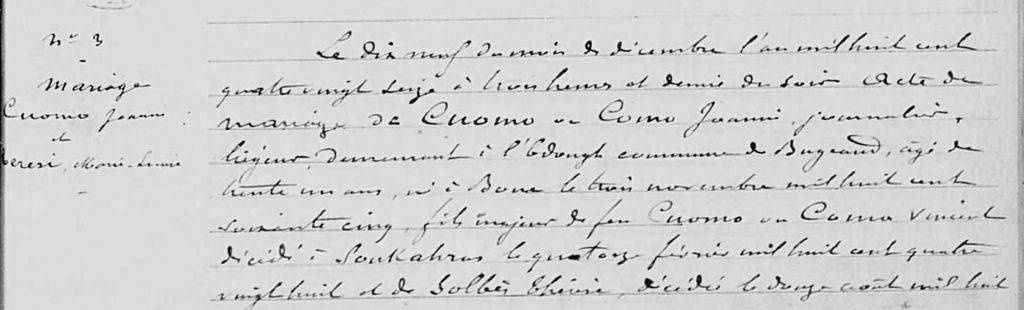 N° 3
mariage
Cuomo Joanni
et
Teresi, Marie-Louise
Le dix neuf du mois de décembre l'an mil huit cent
quatre vingt seize à trois heures et demie du soir Acte de
mariage de Cuomo ou Como Joanni, journalier,
liégeur demeurant à l'Edough commune de Bugeaud, âgé de
trente un ans, né à Bone le trois novembre mil huit cent
soixante cinq, fils majeur de feu Cuomo ou Como Vincent
décédé à Soukahras le quatorze février mil huit cent quatre
vingt huit et de Solbès, décédée le douze août mil huit